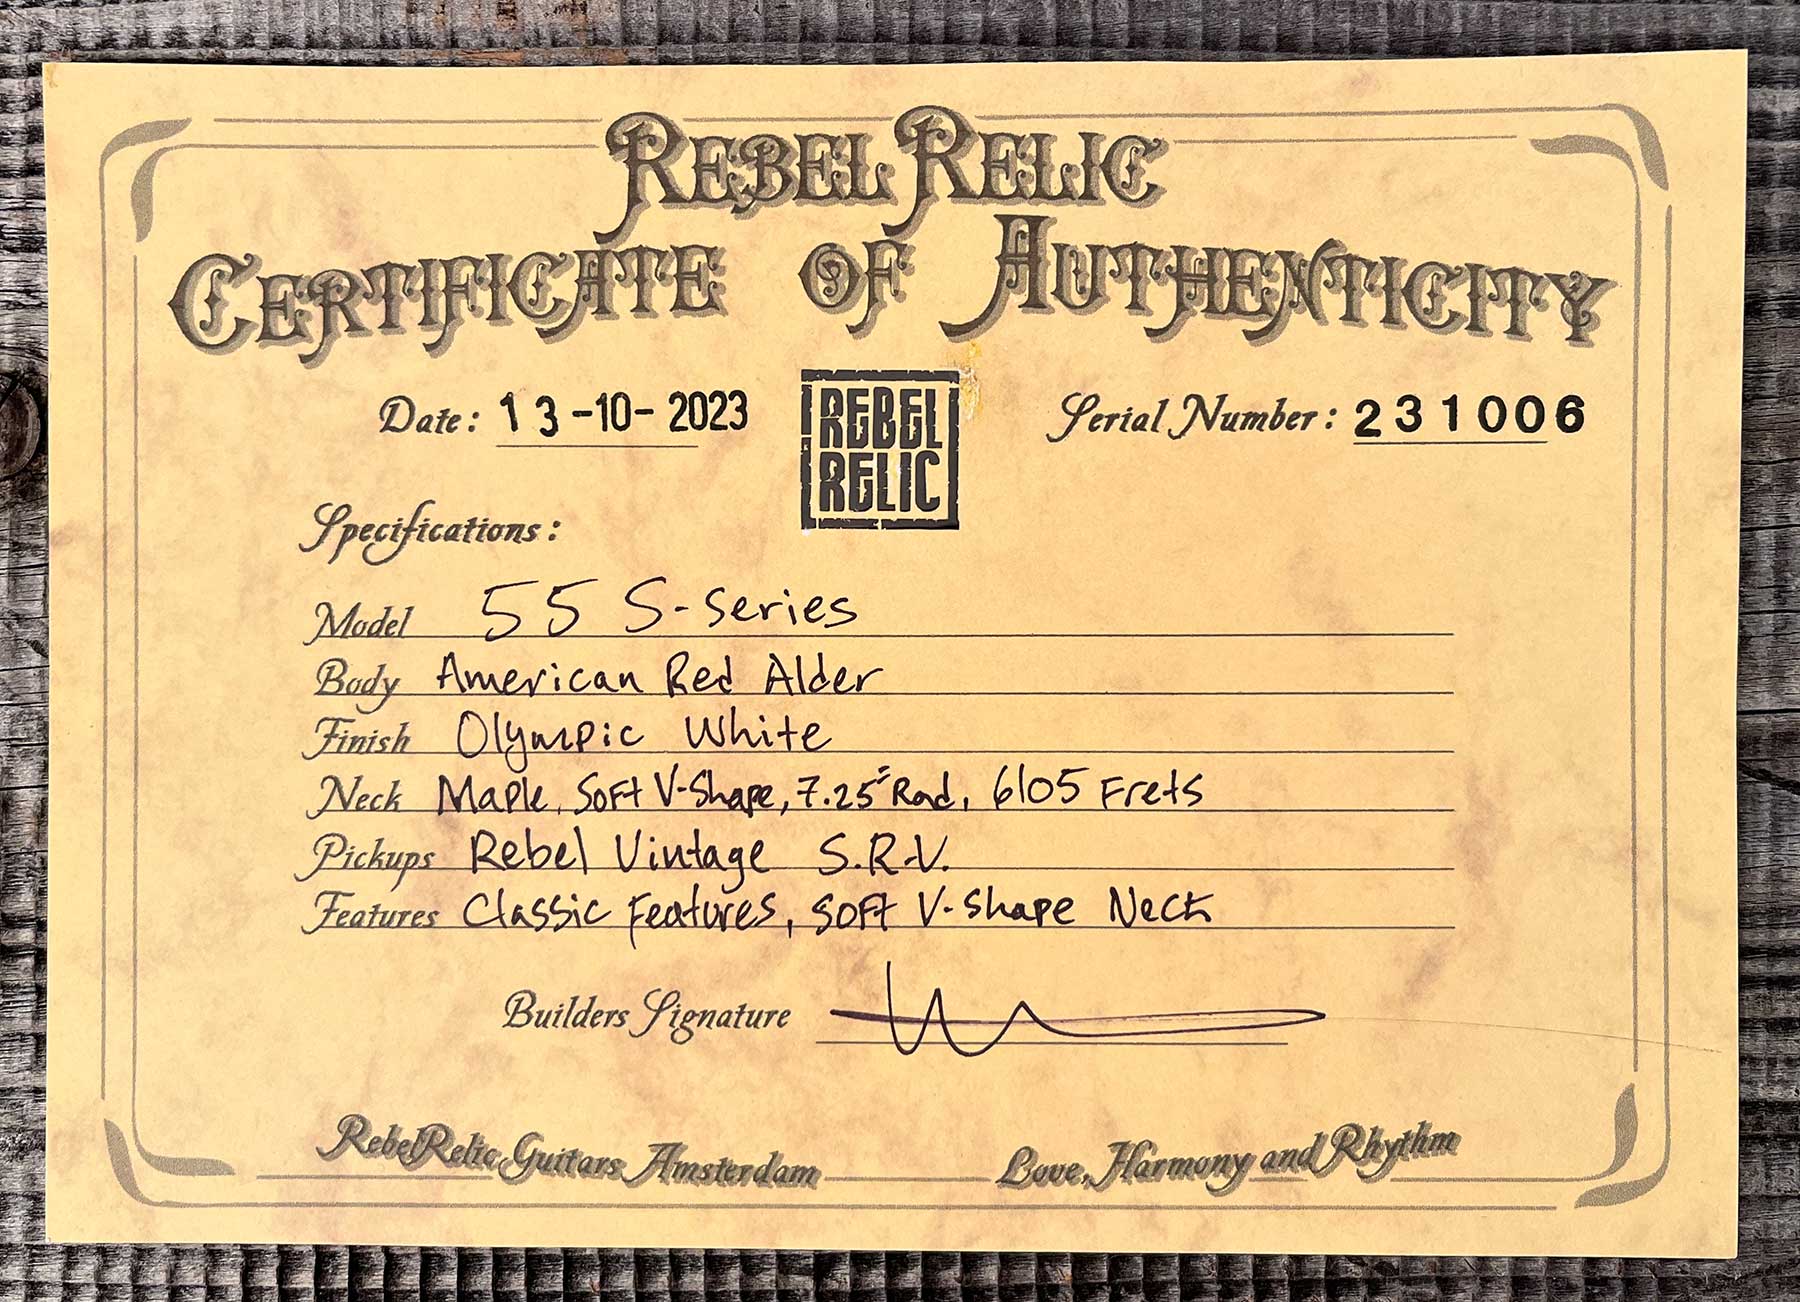 REBEL RELIC
CERTIFICATE OF AUTHENTICITY
Date: 13-10-2023
REBEL
RELIC
Serial Number: 231006
Specifications:
Model 55 S-Series
Body American Red Alder
Finish Olympic White
Neck Maple, Soft V-Shape, 7.25" Rad, 6105 Frets
Pickups Rebel Vintage S.R.V.
Features Classic Features, Soft V-Shape Neck
Builders Signature
RebelRelic Guitars Amsterdam Love, Harmony and Rhythm